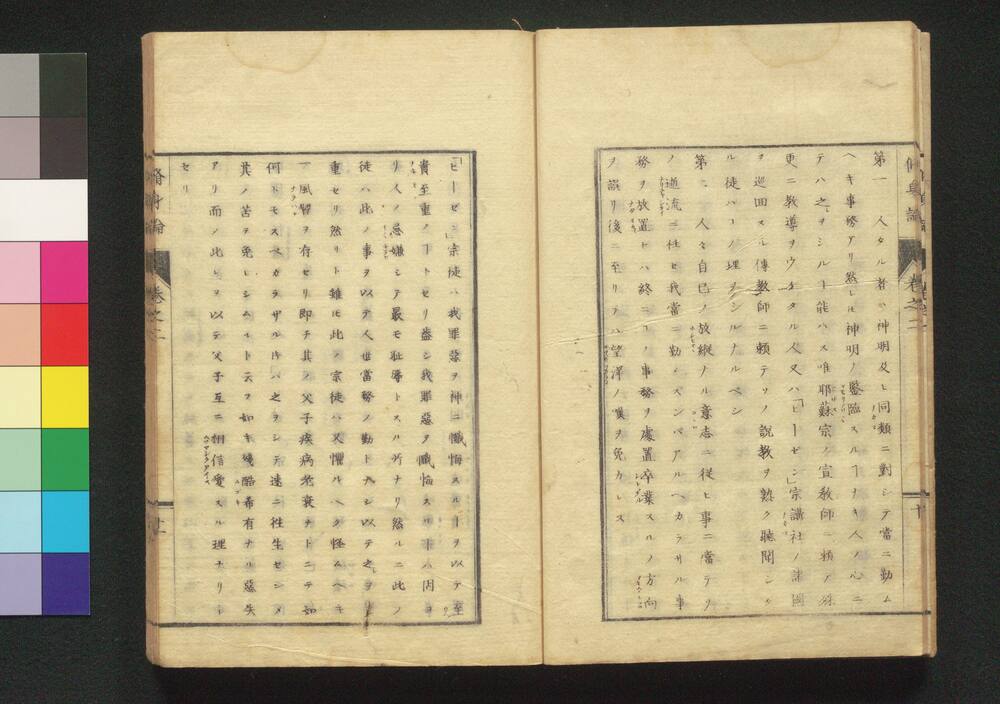 脩身論 卷之二 十
第一 人タル者ハ神明及ヒ同類ニ對シテ當ニ勤ム
ヘキ事務アリ然レ𪜈神明ノ鑒臨スルヿナキ人ノ心ニ
テハ之ヲシルヿ能ハス唯耶蘇宗ノ宣教師ニ頼テ
更ニ教導ヲウケタル人又ハ「ヒーゼン」宗講社ノ諸國
ヲ巡回スル傳教師ニ頼テソノ説教ヲ熟ク聴聞シ
ル徒ハコノ理ヲシルナルベシ
第二 人々自己ノ放縦ナル意志ニ從ヒ事ニ當テ
ノ逋流ニ任セ我當ニ勤メズンバアルヘカラサル事
務ヲ放置ドハ終ニコノ事務ヲ處置卒業スルノ方向
ヲ誤リ後ニ至リテハ望洋ノ嘆ヲ免カレス
「ヒーゼン」宗徒ハ我罪惡ヲ神ニ懺悔スルヿヲ以テ至
貴至重ノヿトセリ蓋シ我罪惡ヲ懺悔スルヿハ因ヨ
リ人ノ忌嫌シテ最モ耻辱トスル所ナリ然ルニ此ノ
徒ハ此ノ事ヲ以テ人世當務ノ勤トナシ以テ之ヲ
重セリ然リト雖𪜈此ノ宗徒ハ又懼ルヘク怪ムヘキ
一風習ヲ存セリ即チ其ノ父子疾病老衰ナドニテ如
何トモスベカラザルドハ之ヲシテ速ニ往生セシメ
其ノ苦ヲ免レシムルト云フ如キ殘酷希有ナル惡失
アリ而ノ此レヲ以テ父子互ニ相信愛スル理ナリト
セリ
脩身論 卷之二